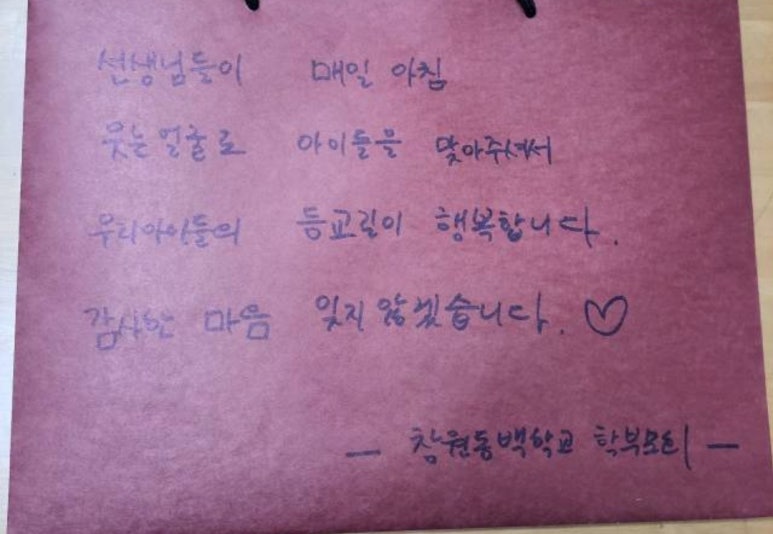 선생님들이 매일 아침
웃는 얼굴로 아이들을 맞아주셔서
우리아이들의 등교길이 행복합니다.
감사한 마음 잊지 않겠습니다. ♡
- 창원동백학교 학부모회 -